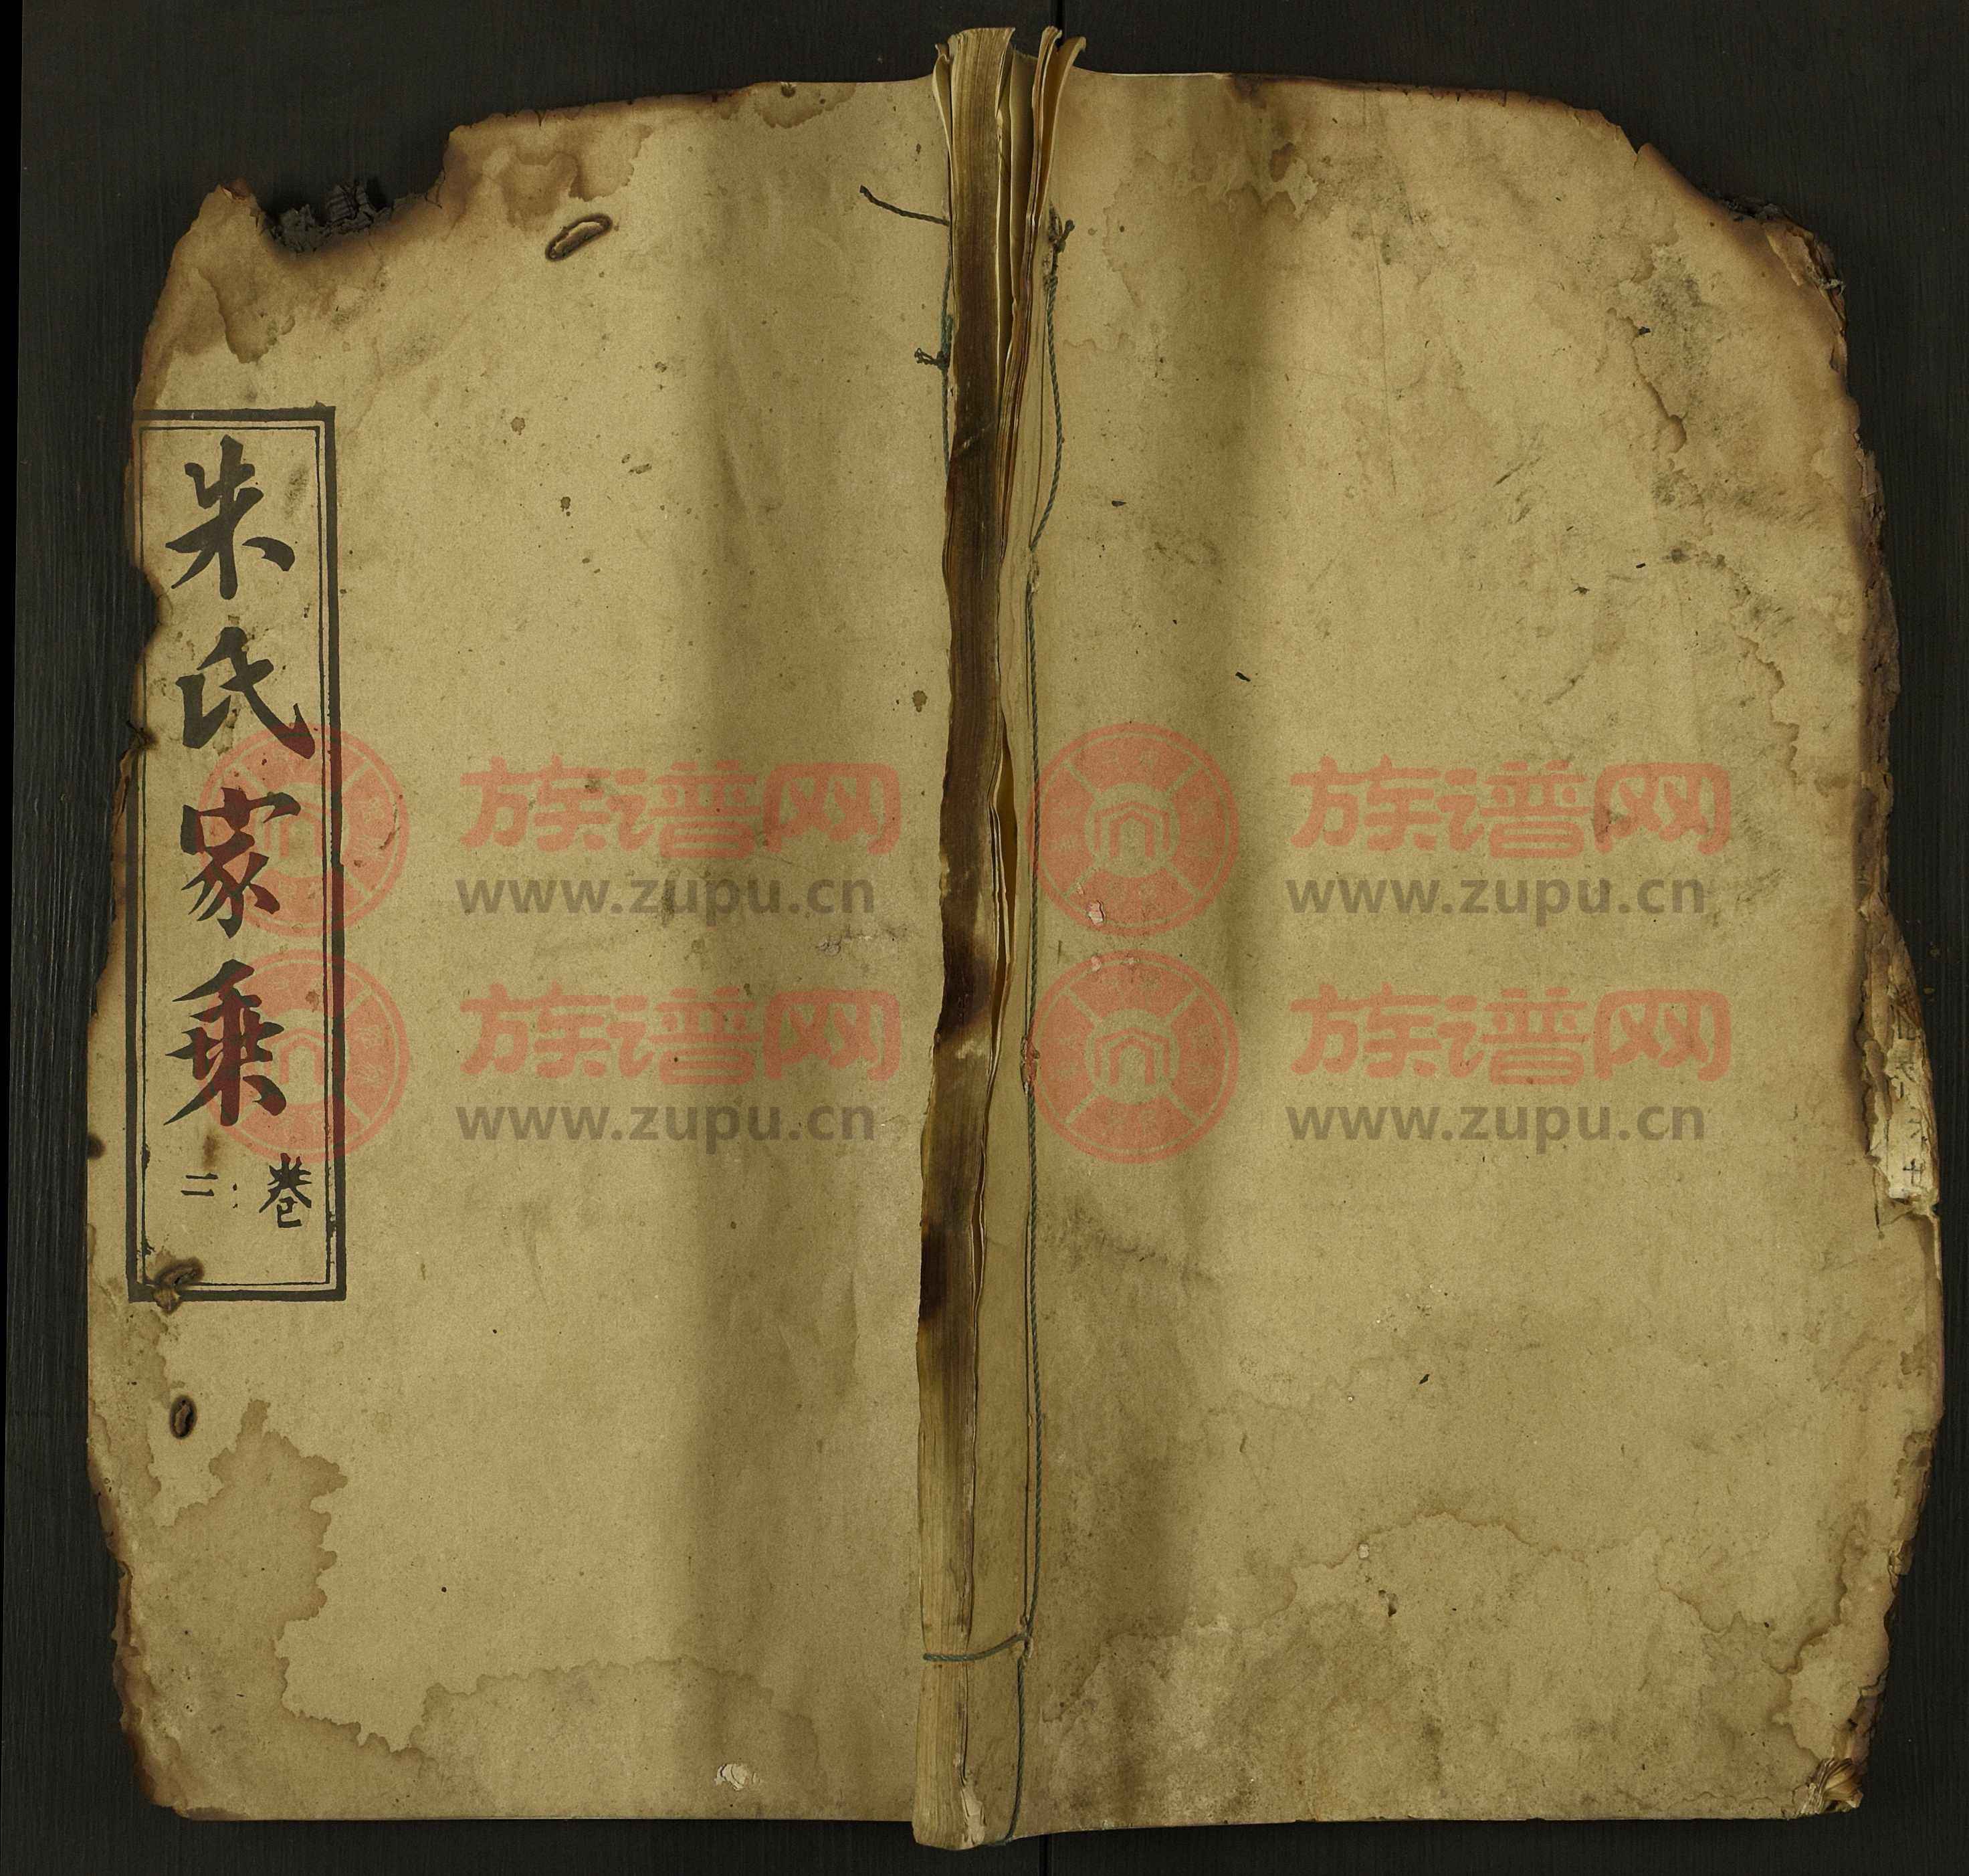 朱氏家乗
卷二
族谱网
www.zupu.cn
族谱网
www.zupu.cn
族谱网
www.zupu.cn
族谱网
www.zupu.cn